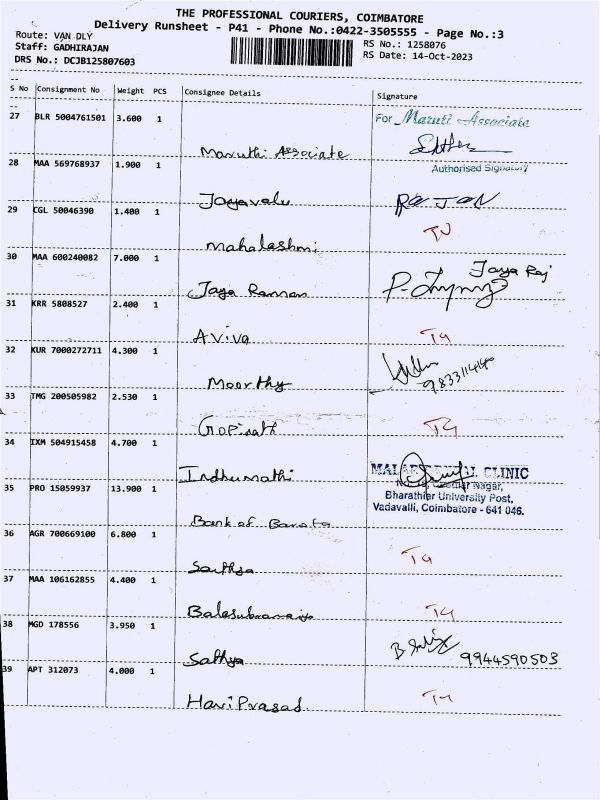 THE PROFESSIONAL COURIERS, COIMBATORE
Delivery Runsheet - P41 - Phone No.:0422-3505555 - Page No.:3
Route: VAN DLY
Staff: GADHIRAJAN
DRS No.: DCJB125807603
RS No.: 1258076
RS Date: 14-Oct-2023
S No Consignment No Weight PCS Consignee Details Signature
27 BLR 5004761501 3.600 1 Maruthi Associate
For Maruti Associate
Authorised Signatory
28 MAA 569768937 1.900 1 Jayavalu RAJAN
29 CGL 50046390 1.400 1 Mahalashmi
30 MAA 600240082 7.000 1 Jaya Raman Jaya Raj
31 KRR 5808527 2.400 1 Aviva
32 KUR 7000272711 4.300 1 Moorthy
33 TMG 200505982 2.530 1 Gopinath
34 IXM 504915458 4.700 1 Indhumathi
CLINIC
Nagar,
Bharathiar University Post,
Vadavalli, Coimbatore - 641 046.
35 PRO 15059937 13.900 1 Bank of Barota
36 AGR 700669100 6.800 1 Sathya
37 MAA 106162855 4.400 1
38 MGD 178556 3.950 1 Sathya 9944590503
39 APT 312073 4.000 1 Hari Prasad